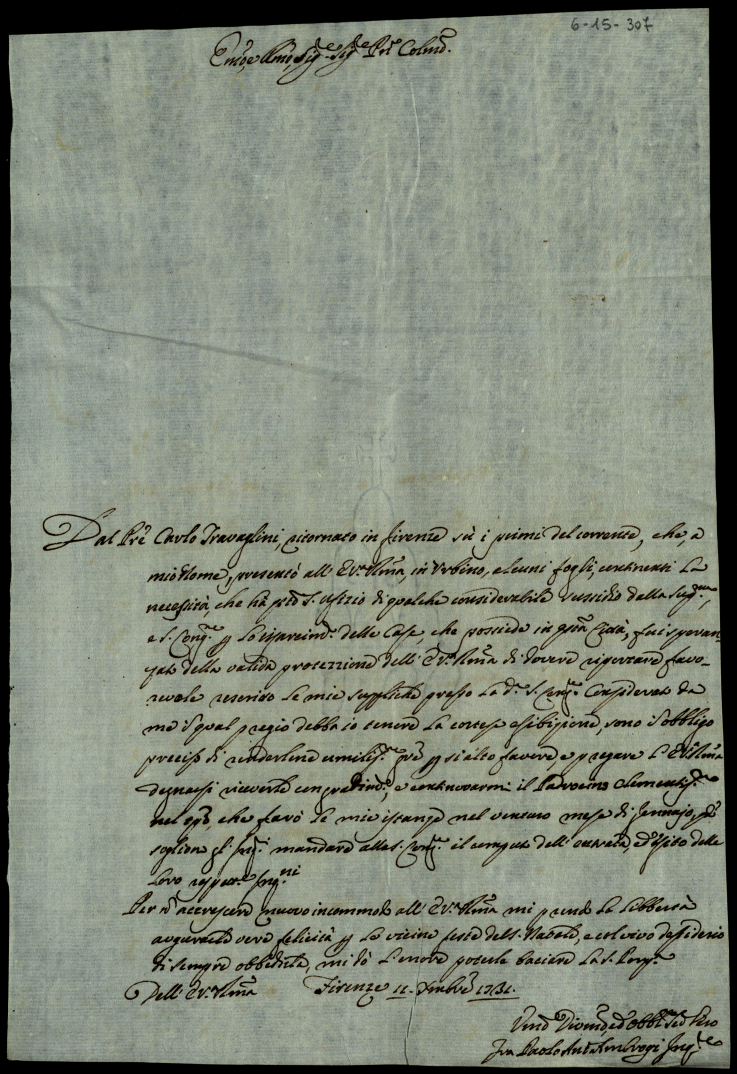 6-15-307
Emo, e Rmo Sig.re Sig.re Prõ Colmo.
Dal Prẽ Carlo Travaglini, ritornato in Firenze sù i primi del corrente, che, a
mio Nome, presentò all' Em.a Rma, in Urbino, alcuni fogli, continenti la
necessità, che hà S. Ufizio di qualche considerabile sussidio dalla Sup.ma
e S. Cong.ne p lo risarcim.to delle Case, che possiede in q̃sta Città, feci speran-
zato della valida protezzione dell' Em.a Rma di dovere riportare favo-
revole rescritto le mie suppliche presso la d.a S. Cong.ne Considerato da
me in qual pregio debba io tenere la cortese esibizione, sono in obbligo
preciso di renderlene umilis.me p si alto favore, e pregare l'Em.a Rma
degnarsi riceverle con gradim.to, e continovarmi il Padrocinio Clementis.mo
nel che farò le mie istanze nel venturo mese di Gennajo,
sogliono gl' Inq.ri mandare alla S. Cong.ne il computo dell' entrata, ed esito delle
loro rispett.e Inq.ni
Per ñ accrescere nuovo incommodo all' Em.a Rma mi prendo la libbertà
augurarle vere felicità p le vicine feste del S. Natale, e col vivo desiderio
di sempre obbedirla, mi dò l'onore poterle baciare la S. Porp.a
Dell' Em.a Rma Firenze 11. Xmbre 1731.
Umo Divmo, ed Obblmo Serv.re Vro
Fra Paolo Ant.o Ambrogi Inq.re